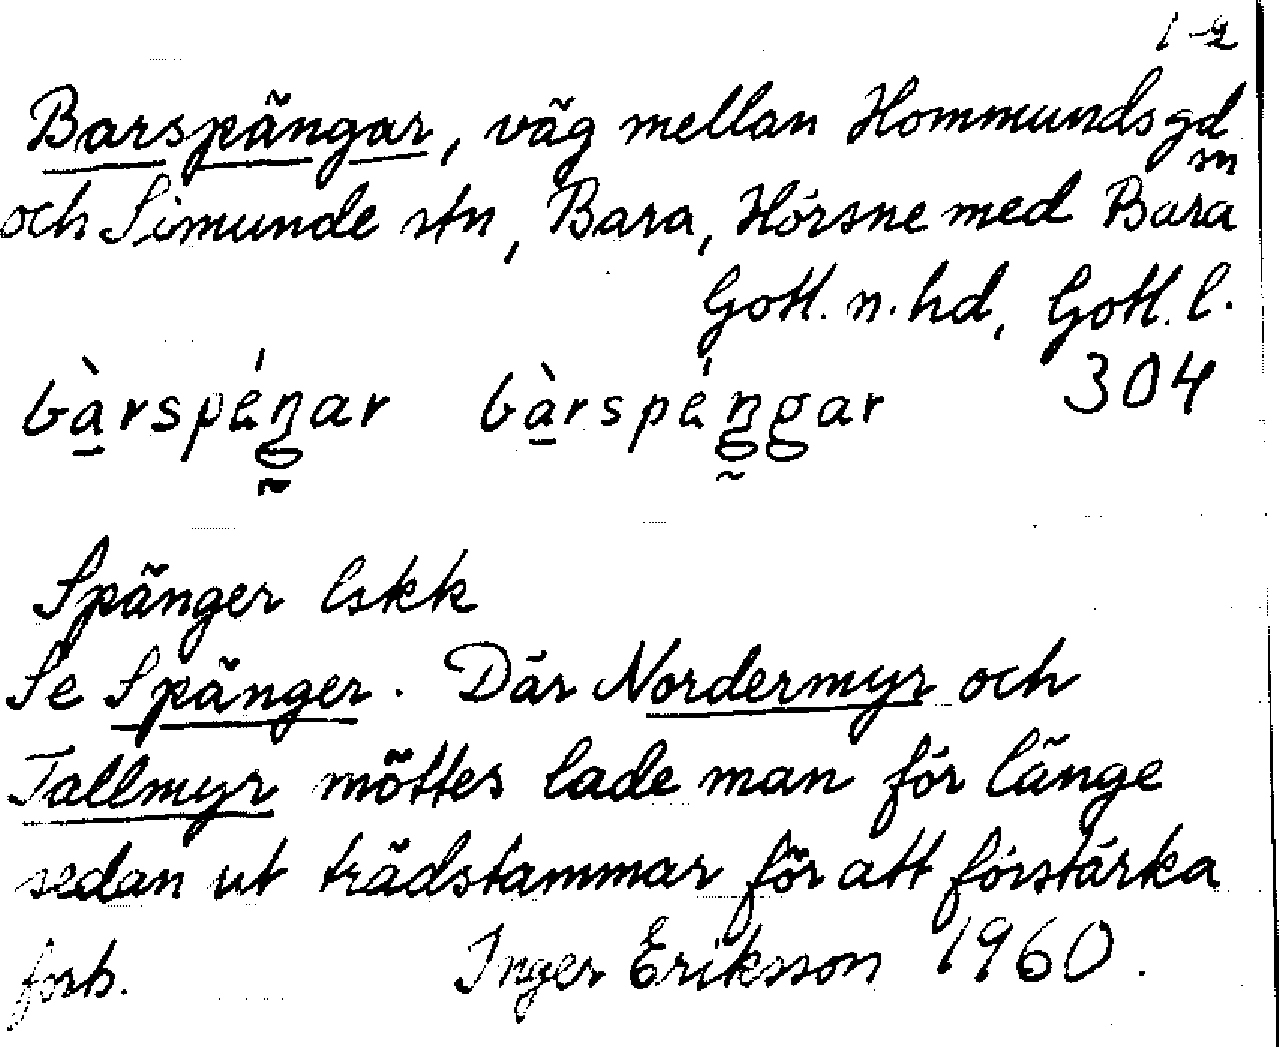 1-2
Barspängar, väg mellan Hommunds gd
och Simunde stn, Bara, Hörsne med Bara sn
Gotl. n. hd, Gotl. l.
304
bàrspéŋar bàrspéŋgar
Spänger lskk
Se Spänger. Där Nordermyr och
Tallmyr möttes lade man för länge
sedan ut trädstammar för att förstärka
forts. Inger Erikson 1960.